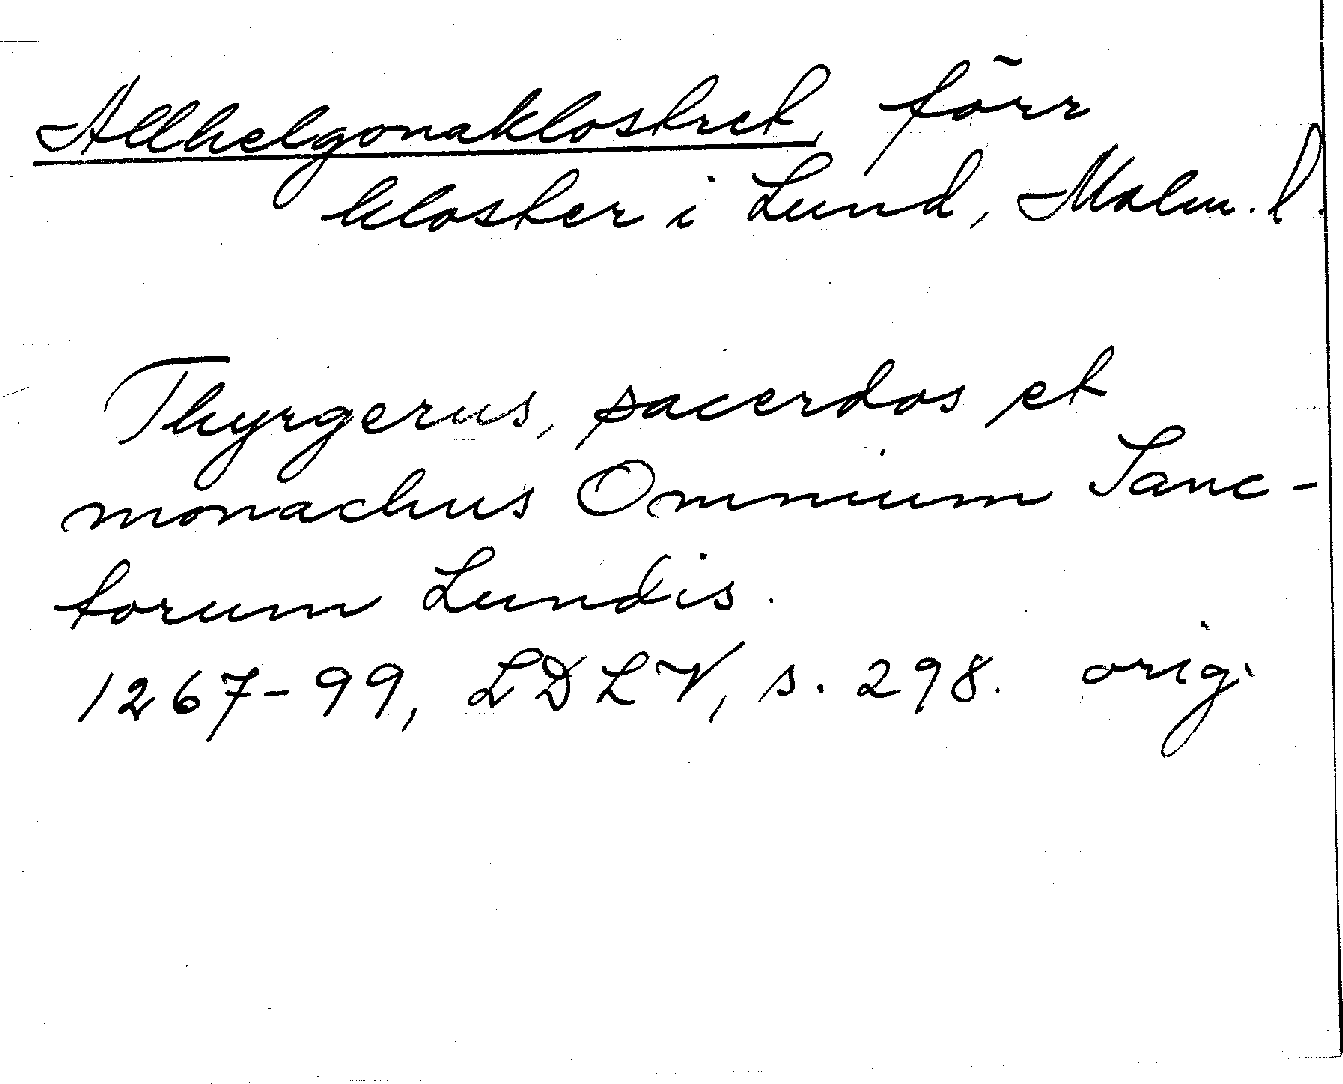 Allhelgonaklostret, förr
kloster i Lund, Malm. l.
Thyrgerus, sacerdos et
monachus Omnium Sanc-
torum Lundis.
1267-99, LDLV, s. 298. orig.